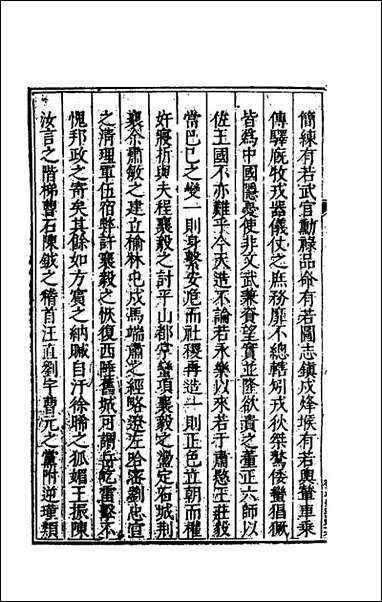 簡練有若武官勳祿品命有若圖志鎮戍烽堠有若輿輦車乘
傳驛廐牧戎器儀仗之庶務靡不總轄矧戎狄桀驁倭蠻猖獗
皆爲中國隱憂使非文武兼資望實並隆欲責之董正六師以
佐王國不亦難乎今天造不論若永樂以來若于肅愍王莊毅
當己巳之變一則身繫安危而社稷再造一則正色立朝而權
奸寢折與夫程襄毅之計平山都掌蠻項襄毅之盪定石城荆
襄余肅敏之建立榆林屯戍馬端肅之經略遼左哈密劉忠宣
之清理軍伍宿弊許襄毅之恢復西陲舊城可謂岳屹雷擊不
愧邦政之寄矣其餘如方賓之納賕自汙徐晞之狐媚王振陳
汝言之階梯曹石陳鉞之稽首汪直劉宇曹元之黨附逆瑾類